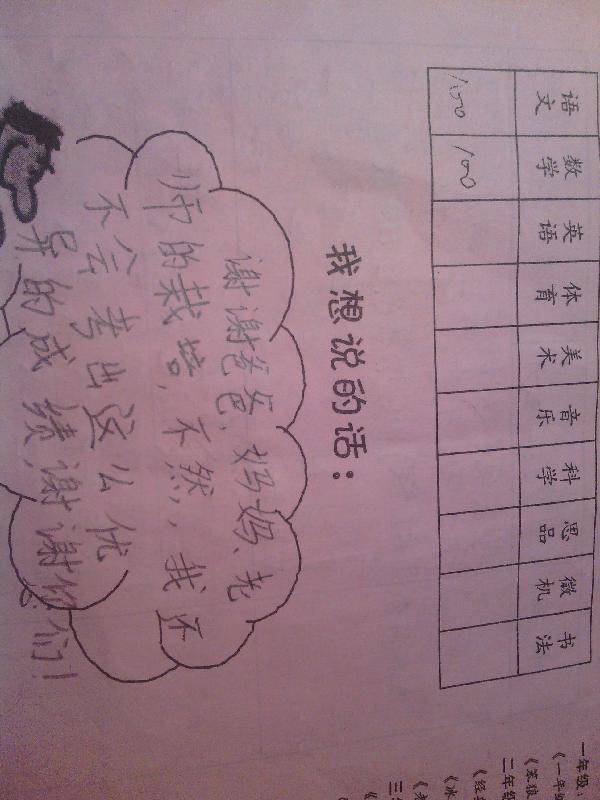 语文 数学 英语 体育 美术 音乐 科学 思品 微机 书法
100 100
我想说的话:
谢谢爸爸、妈妈、老
师的栽培,不然,我还
不会考出这么优
异的成绩,谢谢您们!
一年级:
《一年级
《笨狼
二年级
《经
《冰
三